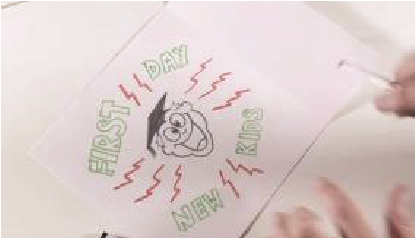 FIRST
DAY
NEW
KIDS